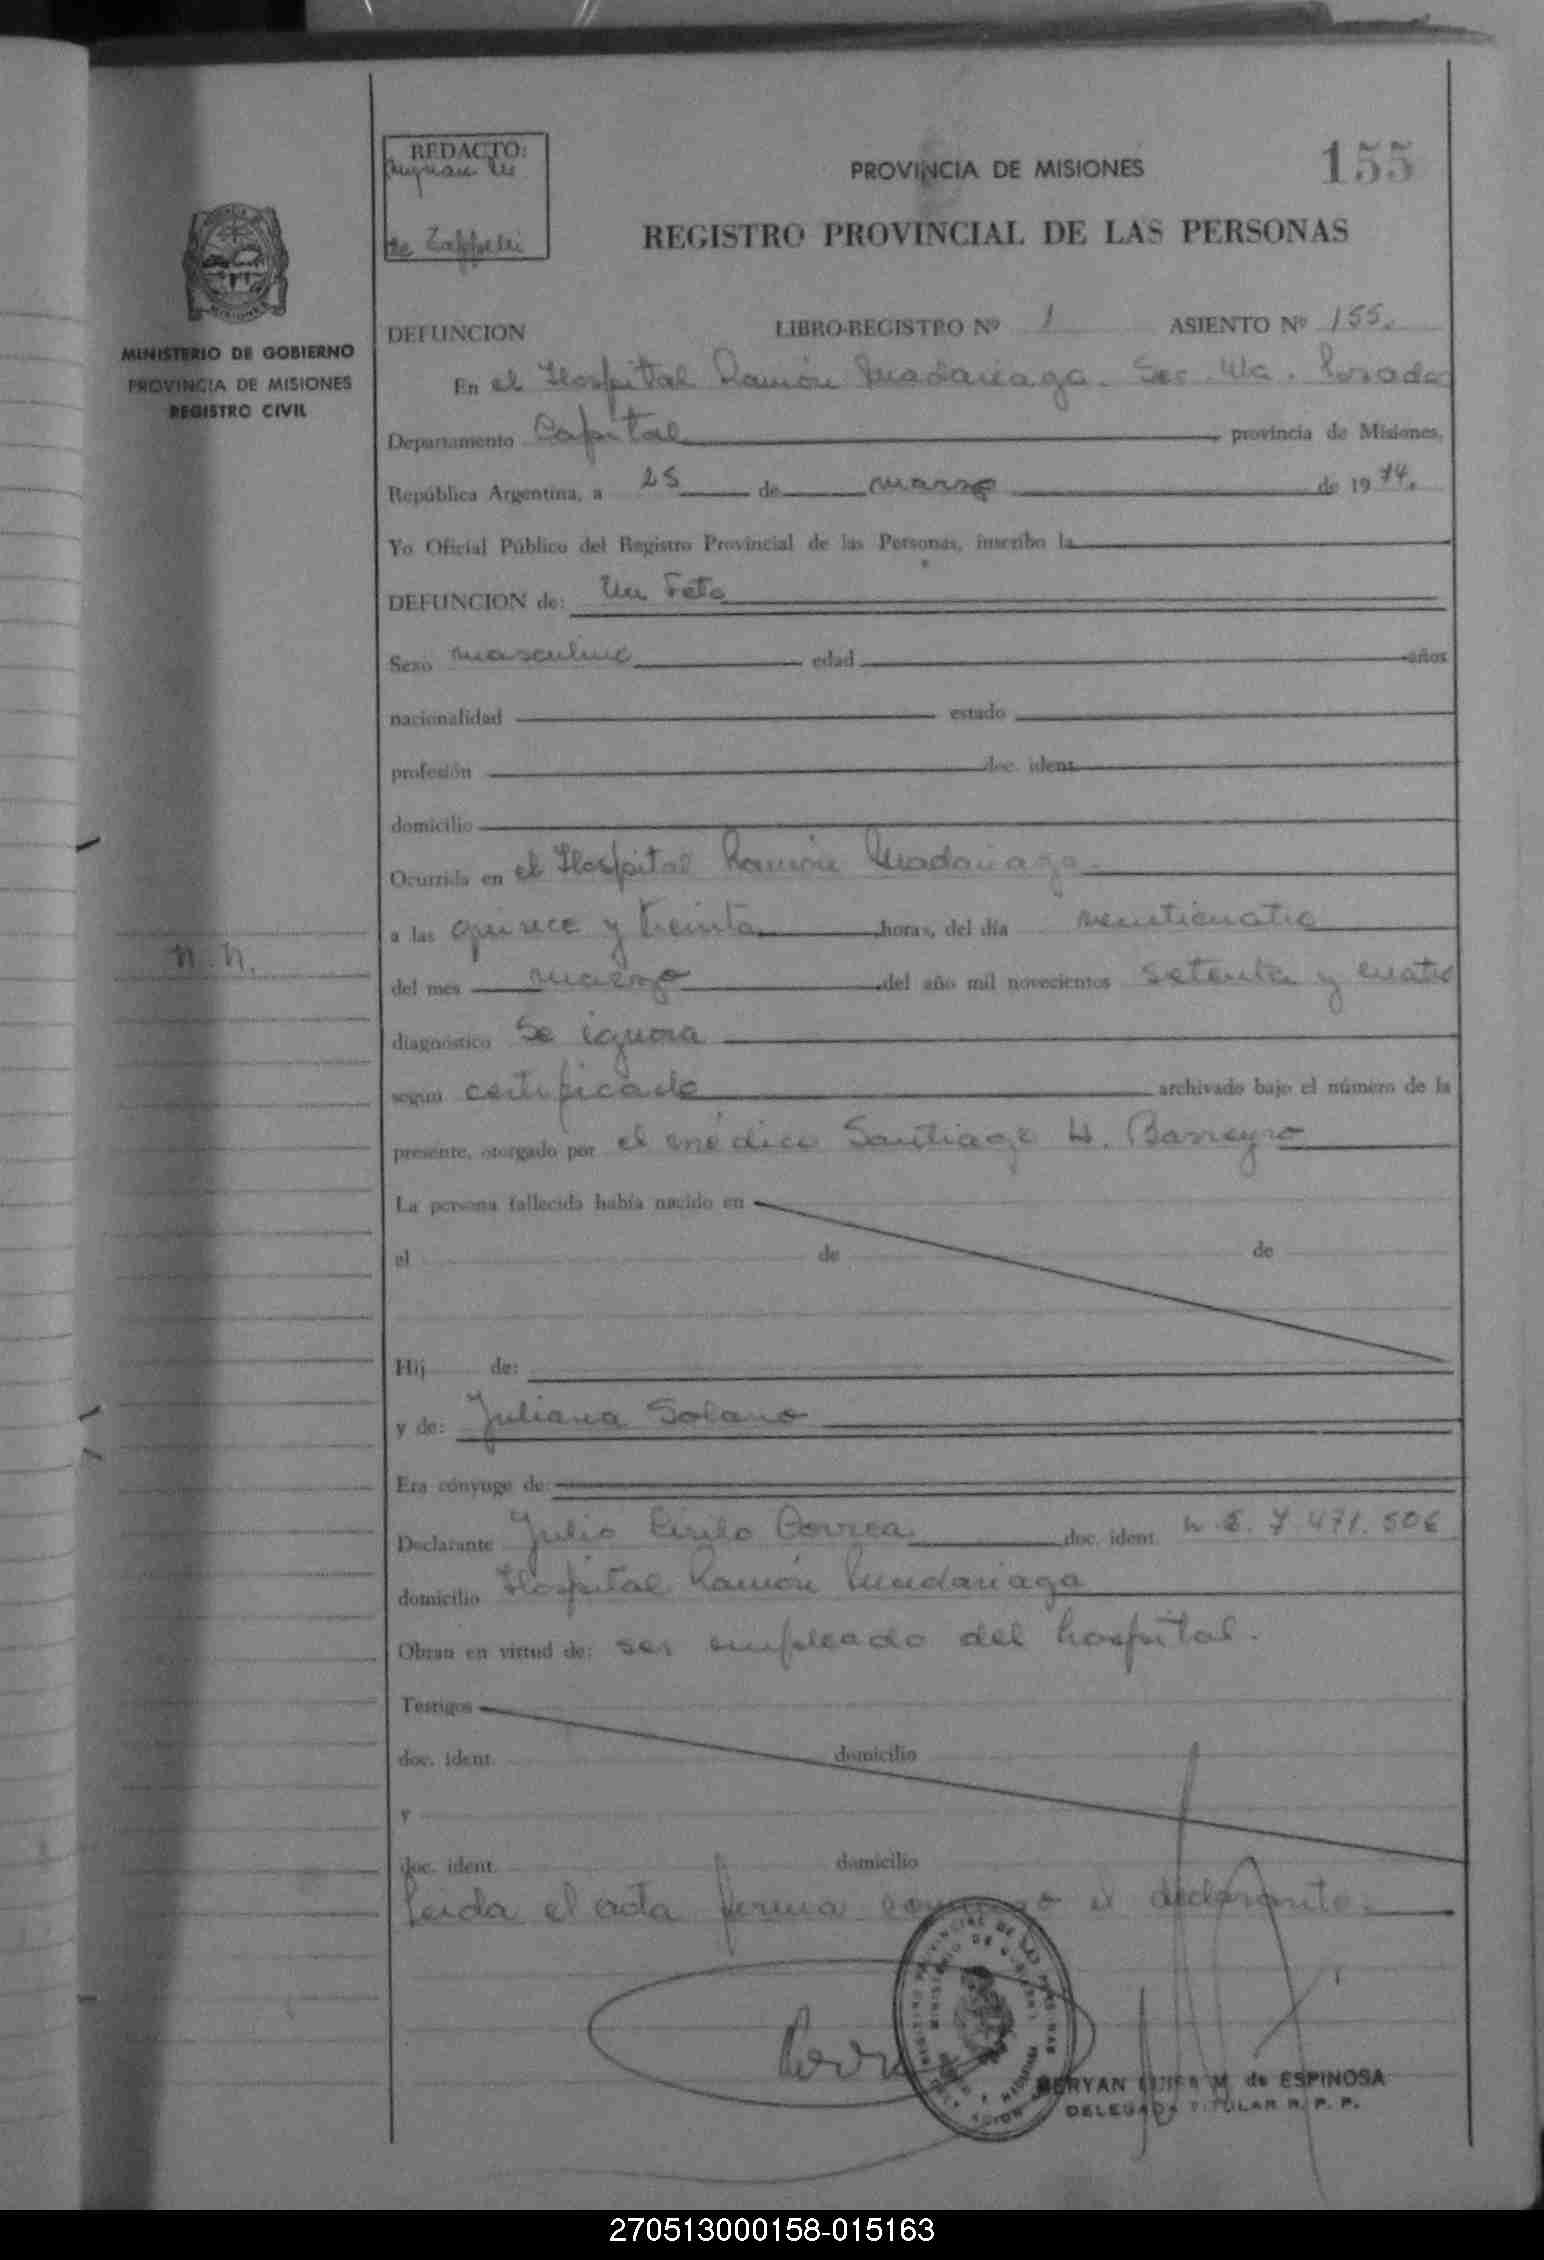 REDACTO:
de Zappelli
PROVINCIA DE MISIONES
155
REGISTRO PROVINCIAL DE LAS PERSONAS
MINISTERIO DE GOBIERNO
PROVINCIA DE MISIONES
REGISTRO CIVIL
DEFUNCION LIBRO-REGISTRO Nº 1 ASIENTO Nº 155.
En el Hospital Ramón Madariaga. Sec. 4ta. Posadas
Departamento Capital provincia de Misiones,
República Argentina, a 25 de marzo de 1974.
Yo Oficial Público del Registro Provincial de las Personas, inscribo la
DEFUNCION de: Un Feto
Sexo masculino edad años
nacionalidad estado
profesión doc. ident.
domicilio
Ocurrida en el Hospital Ramón Madariaga.
a las quince y treinta horas, del día veinticuatro
N.N.
del mes marzo del año mil novecientos setenta y cuatro
diagnóstico Se ignora
según certificado archivado bajo el número de la
presente, otorgado por el médico Santiago H. Barreyro
La persona fallecida había nacido en
el de de
Hij de:
y de: Juliana Solano
Era cónyuge de:
Declarante Julio Cirilo Correa doc. ident. L.E. 7.471.506
domicilio Hospital Ramón Madariaga
Obran en virtud de: ser empleado del hospital.
Testigos
doc. ident. domicilio
y
doc. ident. domicilio
Leida el acta firma conmigo el declarante.
REGISTRO PROVINCIAL DE LAS PERSONAS
MINISTERIO DE GOBIERNO
MERYAN LUISA M. de ESPINOSA
DELEGADA TITULAR R. P. P.
270513000158-015163